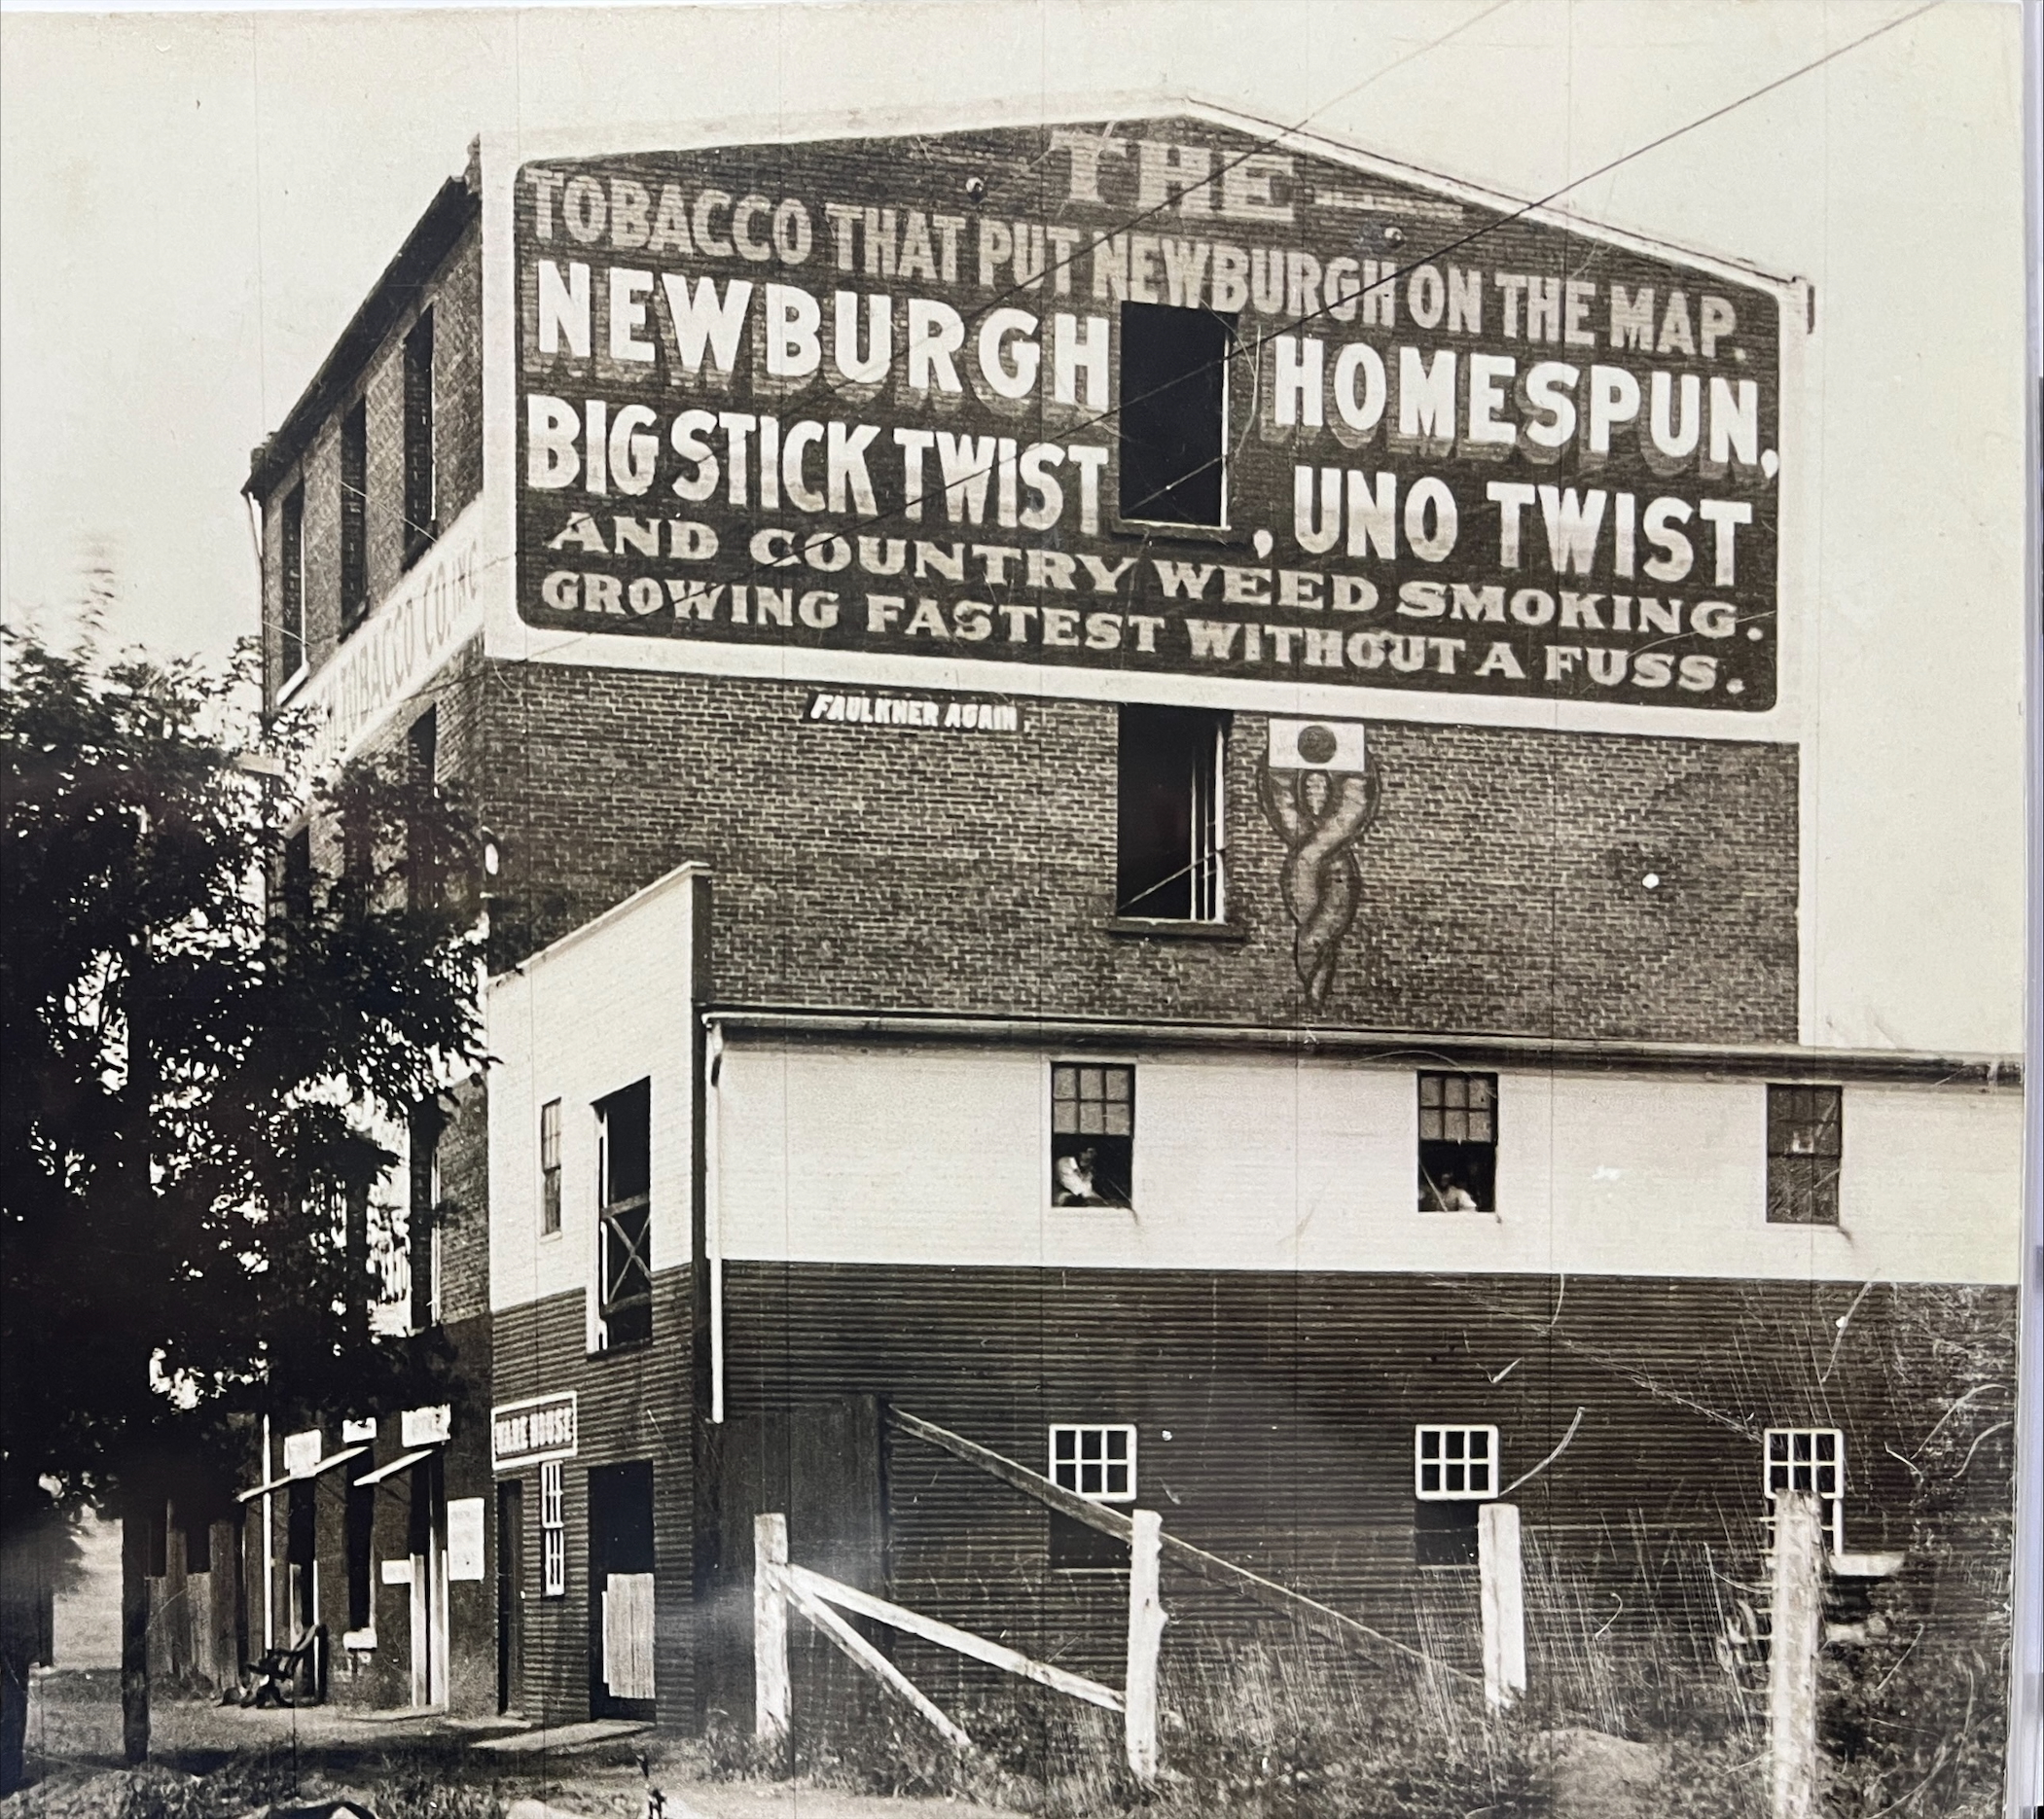 THE
TOBACCO THAT PUT NEWBURGH ON THE MAP.
NEWBURGH HOMESPUN,
BIG STICK TWIST, UNO TWIST
AND COUNTRY WEED SMOKING.
GROWING FASTEST WITHOUT A FUSS.
FAULKNER AGAIN
TOBACCO CO. INC
WARE HOUSE